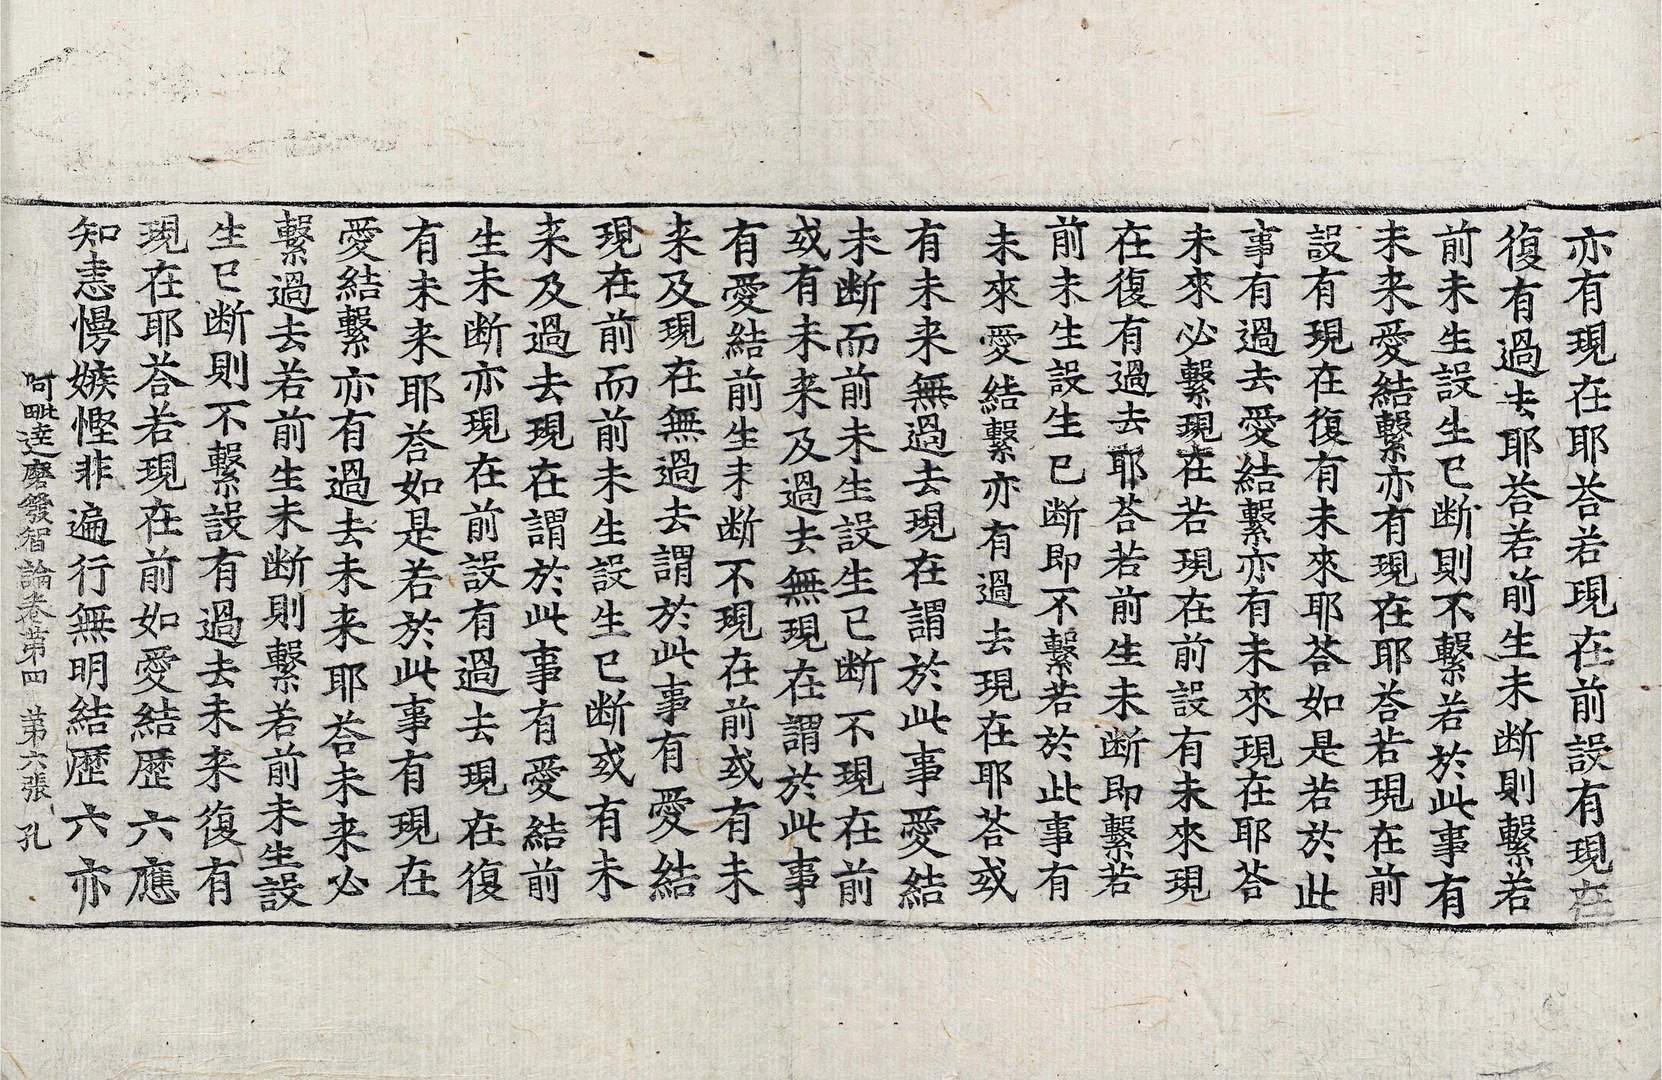 亦有現在耶荅若現在前設有現在
復有過去耶荅若前生未断則繫若
前未生設生已断則不繫若於此事有
未来愛結繫亦有現在耶荅若現在前
設有現在復有未來耶荅如是若於此
事有過去愛結繫亦有未來現在耶荅
未來必繫現在若現在前設有未來現
在復有過去耶荅若前生未断即繫若
前未生設生已断即不繫若於此事有
未來愛結繫亦有過去現在耶荅或
有未来無過去現在謂於此事愛結
未断而前未生設生已断不現在前
或有未来及過去無現在謂於此事
有愛結前生未断不現在前或有未
来及現在無過去謂於此事有愛結
現在前而前未生設生已断或有未
来及過去現在謂於此事有愛結前
生未断亦現在前設有過去現在復
有未来耶荅如是若於此事有現在
愛結繫亦有過去未来耶荅未来必
繫過去若前生未断則繫若前未生設
生已断則不繫設有過去未来復有
現在耶荅若現在前如愛結歷六應
知恚慢嫉慳非遍行無明結歷六亦
阿毗達磨發智論卷第四 第六張 孔